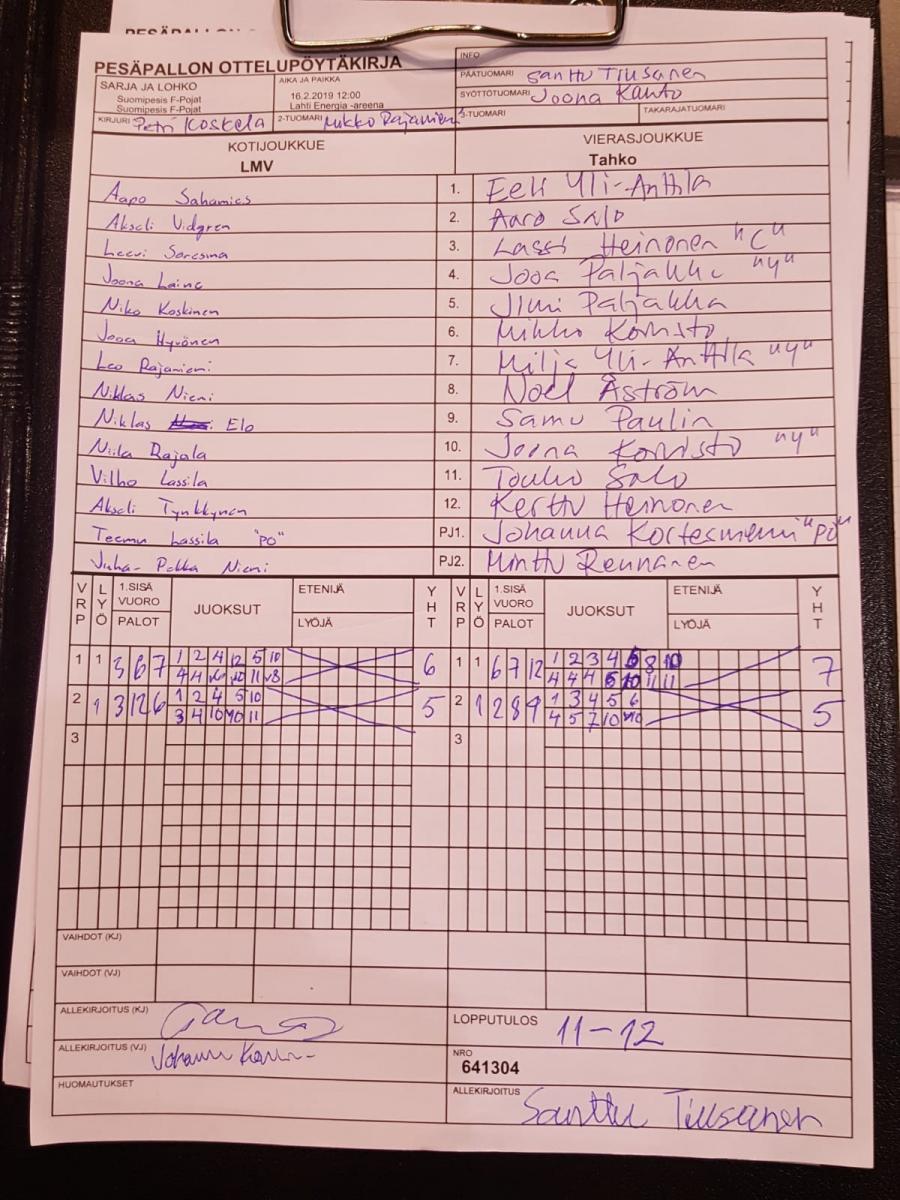 PESÄPALLON OTTELUPÖYTÄKIRJA
INFO
SARJA JA LOHKO
Suomipesis F-Pojat
Suomipesis F-Pojat
AIKA JA PAIKKA
16.2.2019 12:00
Lahti Energia -areena
PÄÄTUOMARI Santtu Tiusanen
SYÖTTÖTUOMARI Joona Kanto
KIRJURI Petri Koskela 2-TUOMARI Mikko Rajaniemi 3-TUOMARI TAKARAJATUOMARI
KOTIJOUKKUE VIERASJOUKKUE
LMV Tahko
Aapo 1. Eeli Yli-Anttila
Akseli Vidgren 2. Aaro Salo
Leevi Soresma 3. Lassi Heinonen "C"
Joona Laine 4. Jooa Paljakka "ny"
Niko Koskinen 5. Jimi Paljakka
Jooa Hyvönen 6. Mikko Korvisto
Leo Rajaniemi 7. Milja Yli-Anttila "ny"
Niklas Niemi 8. Noel Åström
Niklas Elo 9. Samu Paulin
Niila Rajala 10. Joona Korvisto "ny"
Vilho Lassila 11. Touko Salo
Akseli Tynkkynen 12. Kerttu Heinonen
Teemu Lassila "PO" PJ1. Johanna Kortesniemi "PO"
Juha-Pekka Niemi PJ2. Minttu Rennanen
VRP LYÖ 1.SISÄ VUORO PALOT JUOKSUT ETENIJÄ LYÖJÄ YHT VRP LYÖ 1.SISÄ VUORO PALOT JUOKSUT ETENIJÄ LYÖJÄ YHT
1 1 3 6 7 1 2 4 12 5 10 6 1 1 6 7 12 1 2 3 4 5 8 10 7
4 4 10 11 v8 4 4 4 5 10 11 11
2 1 3 12 6 1 2 4 5 10 5 2 1 2 8 9 1 3 4 5 6 5
3 4 10 10 11 4 5 7 10 10
3 3
VAIHDOT (KJ)
VAIHDOT (VJ)
ALLEKIRJOITUS (KJ)
LOPPUTULOS 11-12
ALLEKIRJOITUS (VJ)
NRO
641304
HUOMAUTUKSET
ALLEKIRJOITUS Santtu Tiusanen